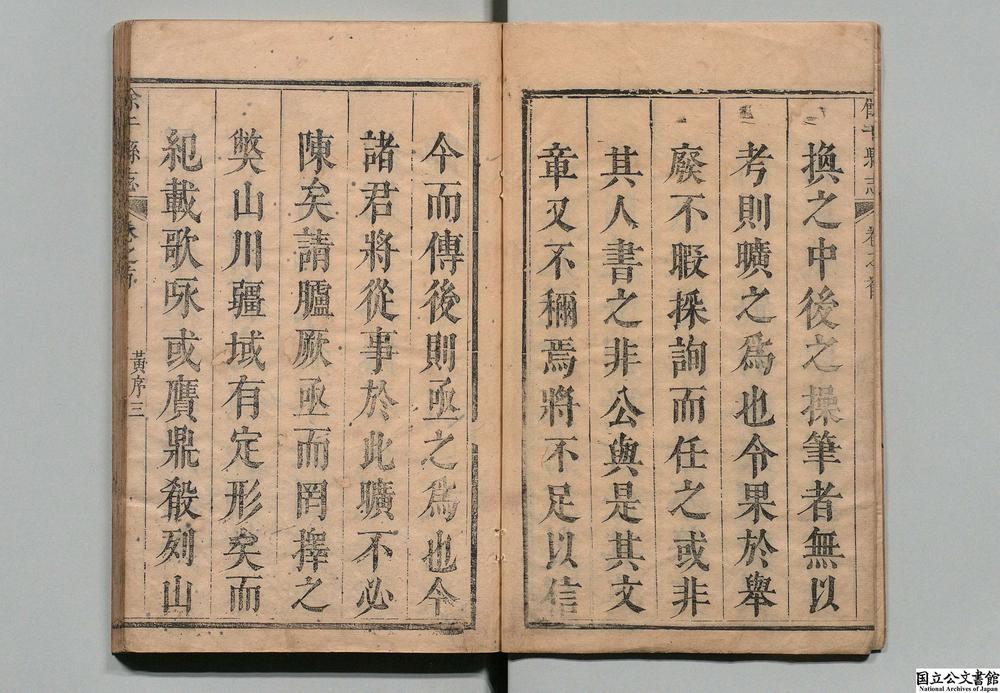 換之中後之操筆者無以
考則曠之為也令果於舉
廢不暇採詢而任之或非
其人書之非公與是其文
章又不稱焉將不足以信
今而傳後則亟之為也今
諸君將從事於此曠不必
陳矣請臚厥亟而罔擇之
獘山川疆域有定形矣而
紀載歌咏或贋鼎殽列山
黃序三
餘干縣志
国立公文書館
National Archives of Japan